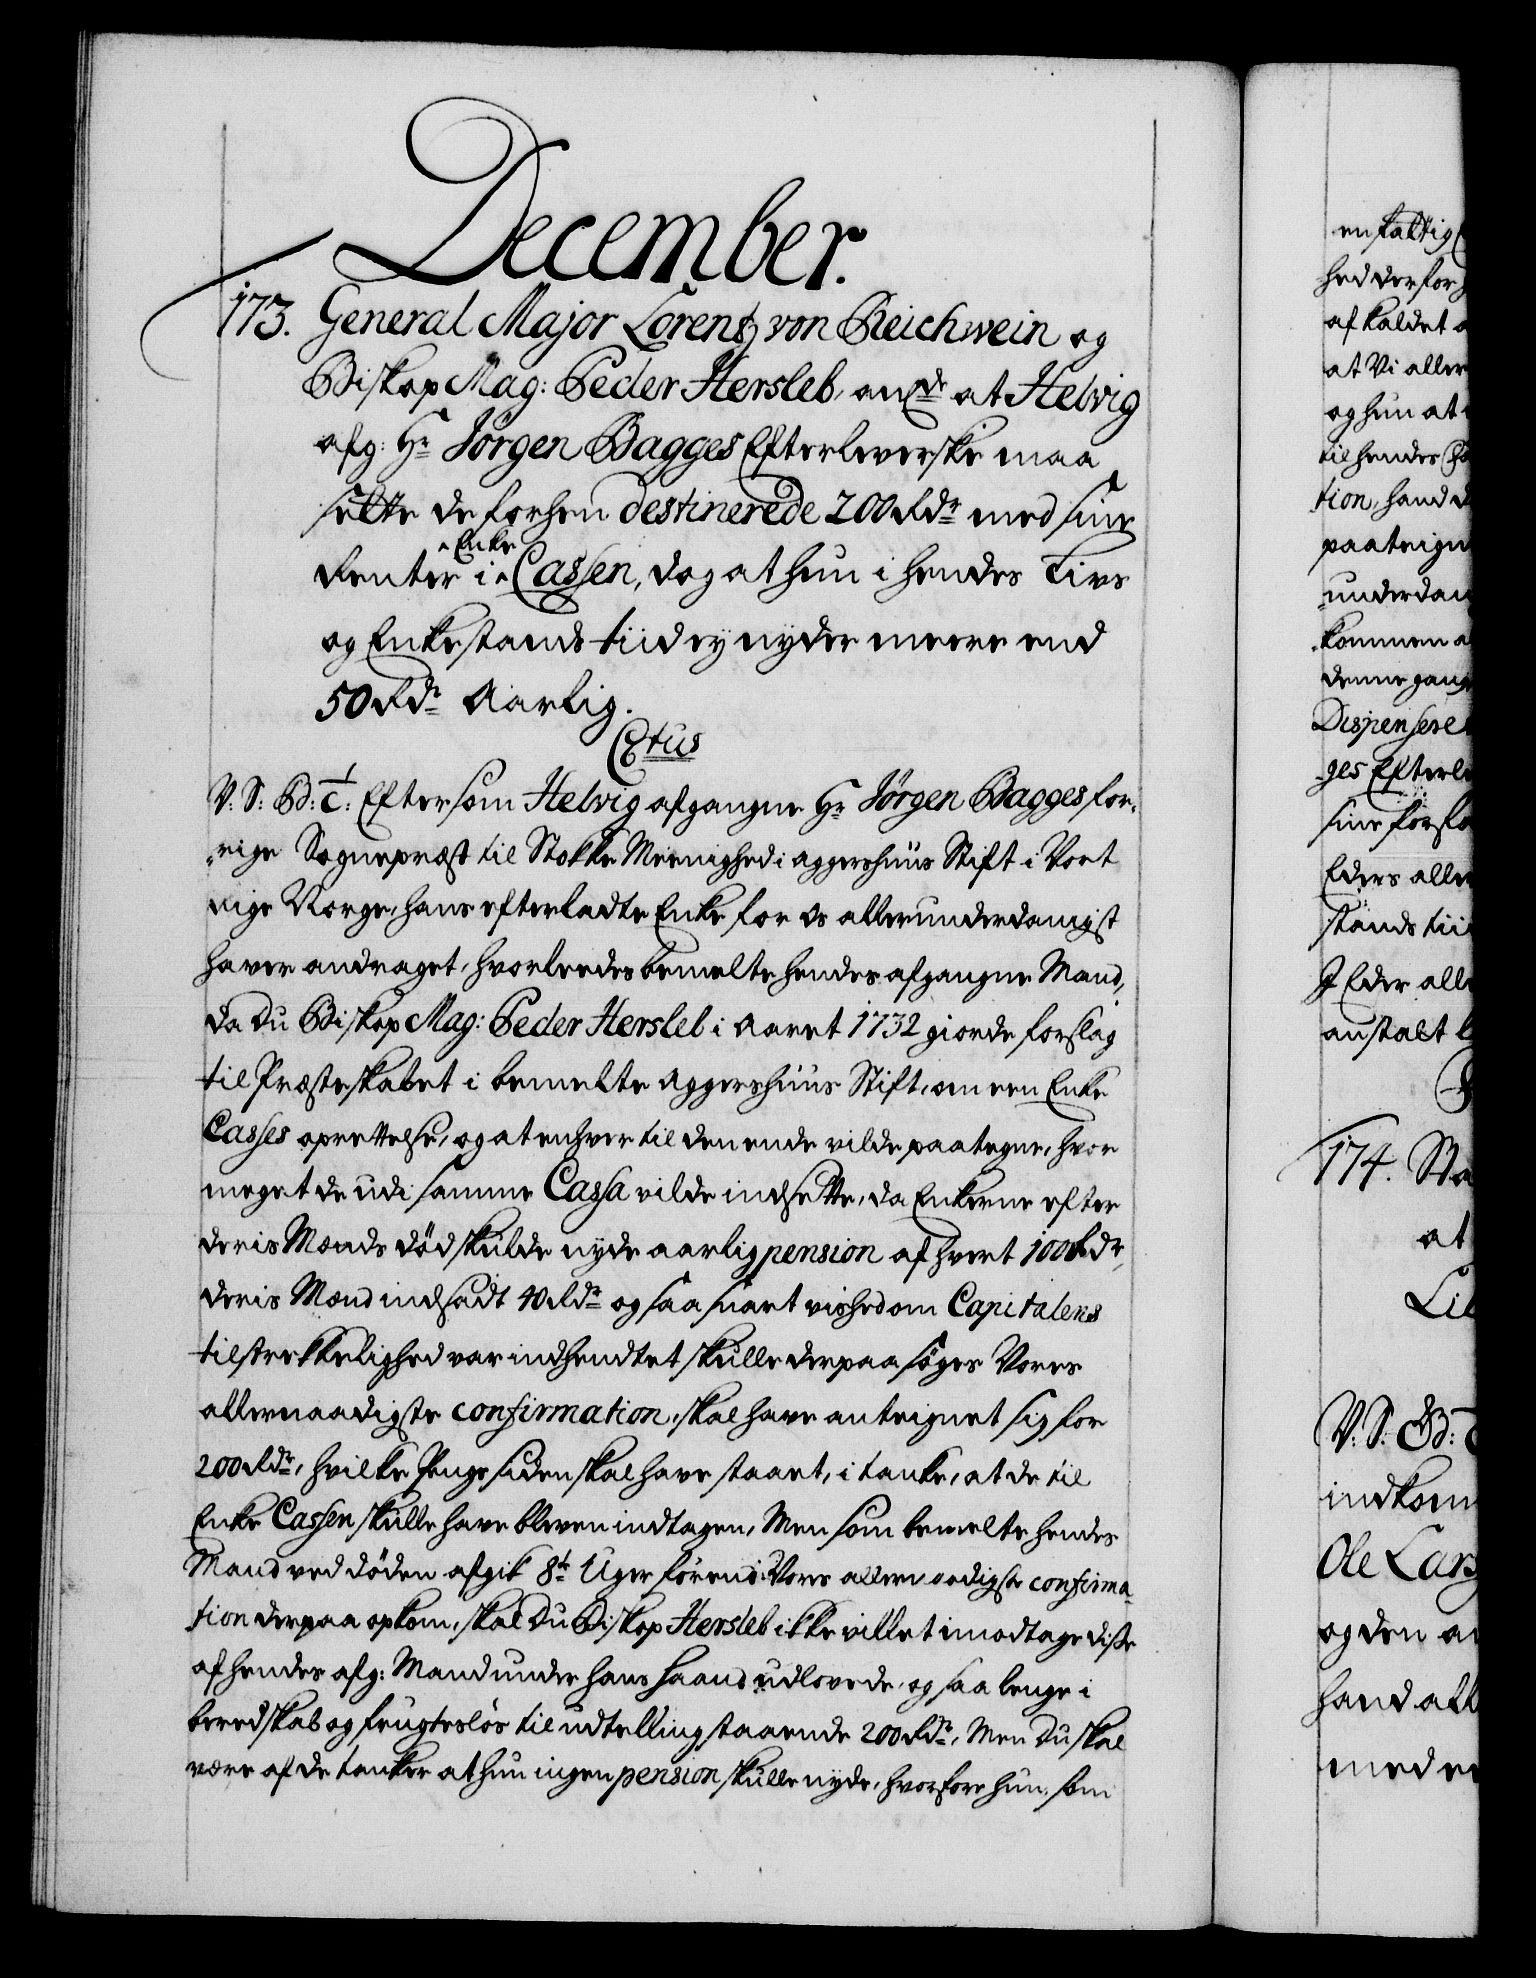 December.
173. General Major Lorentz von Reichwein og
Biskop Mag: Peder Hersleb, anlde at Helvig
afg: Hr Jörgen Bagges Efterleverske maa
sette de forhen destinerede 200 Rdr med sine
Renter i Enke Cassen, dog at hun i hendes Livs
og Enkestands tiid ey nyder meere end
50 Rdr Aarlig.
C6tus
V: S: Gd: T: Eftersom Helvig afgangne Hr Jörgen Bagges for-
-rige Sognepræst til Stokke Meenighed i Aggershuus Stift i Vort
Rige Norge, hans efterladte Enke for Os allerunderdanigst
haver andraget, hvorleedes bemelte hendes afgangne Mand,
da du Biskop Mag: Peder Hersleb i Aaret 1732 giorde forslag
til Præsteskabet i bemelte Aggershuus Stift, om een Enke
Casses oprettelse, og at enhver til den ende vilde paategne, hvor
meget de udi samme Cassa vilde indsette, da Enkerne efter
deris Mænds död skulde nyde aarlig pension af hvert 100 Rdr,
deris Mænd indsadt 40 Rdr og saa snart vished om Capitalens
tilstrekkelighed var indhendtet skulle derpaa söges Vores
allernaadigste confirmation, skal have anteignet sig for
200 Rdr, hvilke Penge siden skal have staaet, i tanke, at de til
Enke Cassen skulle have bleven indtagen, Men som bemelte hendes
Mand ved döden afgik 8te Uger förend Vores allernaadigste confirma-
tion derpaa opkom, skal du Biskop Hersleb ikke villet imodtage diße
af hendes afg: Mand under hans haand udlovede, og saa lenge i
beredskab og frugteslös til udtelling staaende 200 Rdr, Men du skal
være af de tanker at hun ingen pension skulle nyde, hvorfore hun, som
en fattig
hed derfor
af kaldet
at Vi aller
og hun at
til hendes
tion, hand
paateign
underdan
kommen
denne gang
Dispensere
-ges Efterle
sine forfo
Eders alle
stands tii
I Eder all
anstalt
174. Sta
at
Lil
V: S: Gd:
indkom
Ole Lars
og den
hand all
med